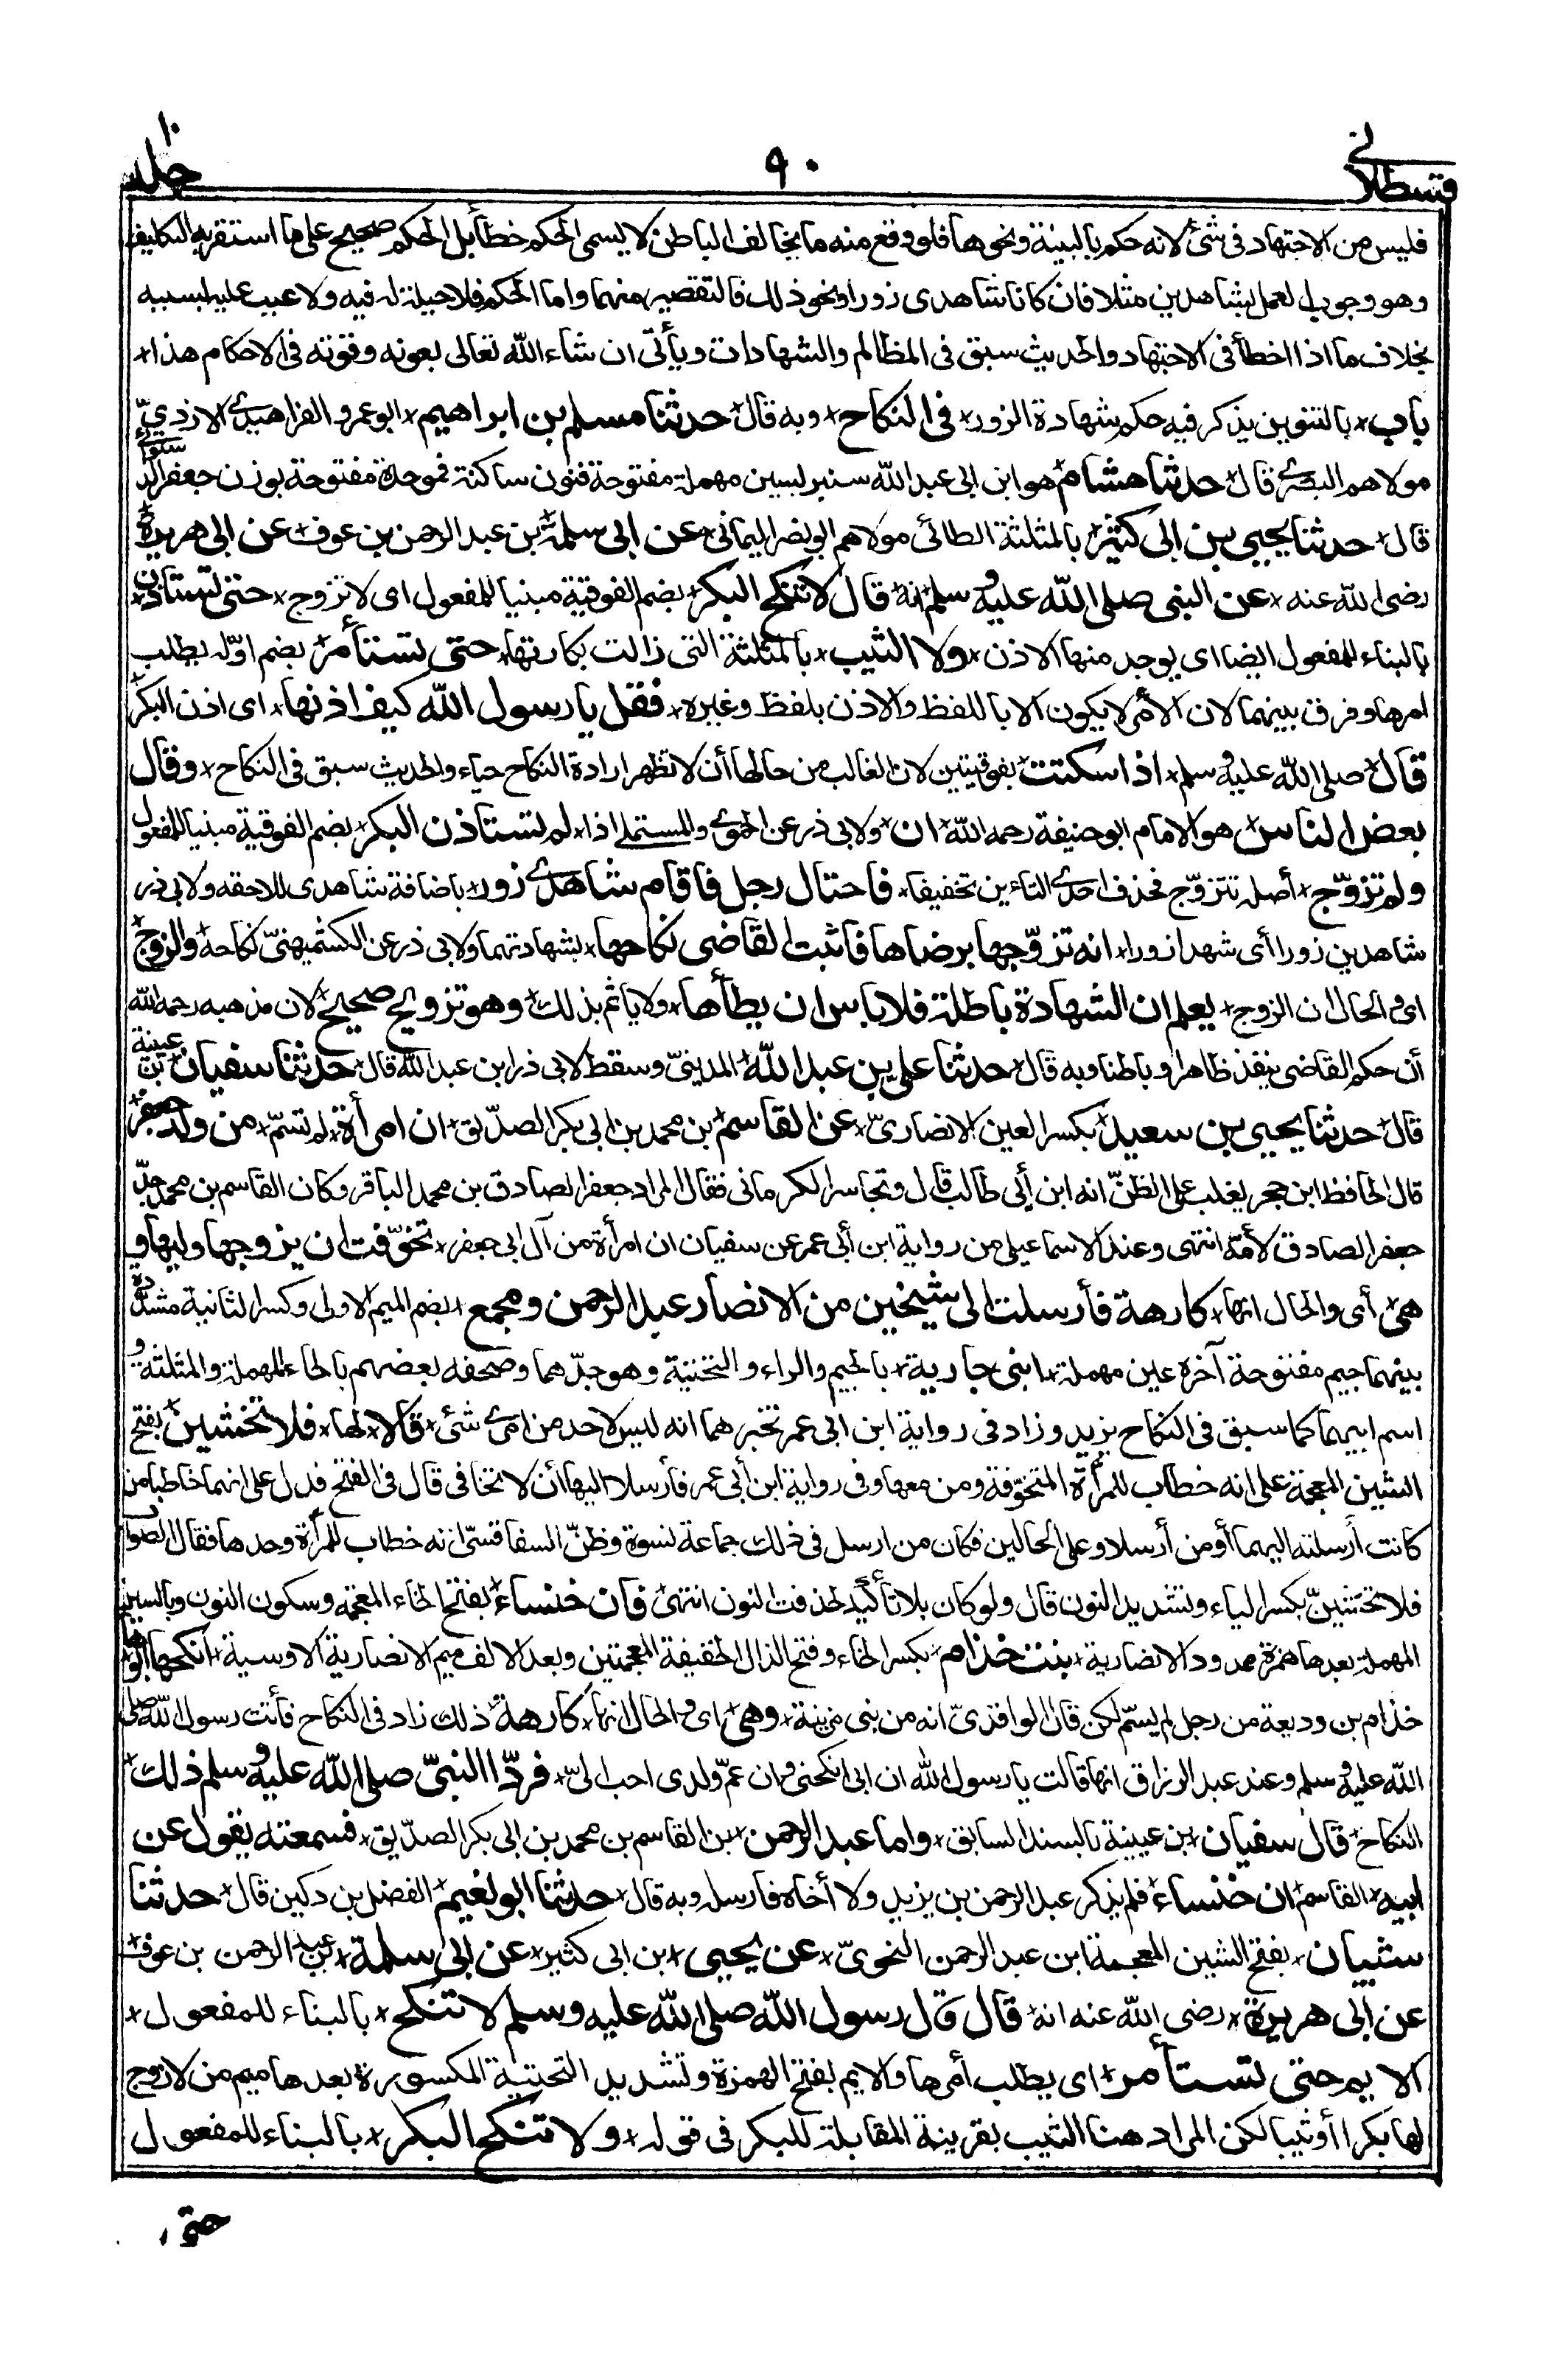 قسطلاني
٩٠
جلد ١٠
فليس من الاجتهاد فى شئ لانه حكم بالبينة ونحوها فلو وقع منه ما يخالف الباطن لا يسمى الحكم خطأ بل الحكم صحيح على ما استقر به التكليف
وهو وجوب العمل بشاهدين مثلا فان كانا شاهدى زورا ونحو ذلك فالتقصير منهما واما الحكم فلا حيلة له فيه ولا عيب عليه بسببه
بخلاف ما اذا اخطأ فى الاجتهاد والحديث سبق فى المظالم والشهادات ويأتى ان شاء الله تعالى بعونه وقوته فى الاحكام هذا *
باب * بالتنوين يذكر فيه حكم شهادة الزور * فى النكاح * وبه قال * حدثنا مسلم بن ابراهيم * ابو عمرو الفراهيدى الازدىّ
مولاهم البصرى قال * حدثنا هشام * هو ابن ابى عبد الله سنبر بسين مهملة مفتوحة فنون ساكنة فموحدة مفتوحة بوزن جعفر الدستوائى
قال * حدثنا يحيى بن ابى كثير * بالمثلثة الطائى مولاهم ابو نصر اليمانى * عن ابى سلمة * بن عبد الرحمن بن عوف * عن ابى هريرة *
رضى الله عنه * عن النبى صلى الله عليه وسلم * انه * قال لا تنكح البكر * بضم الفوقية مبنيا للمفعول اى لا تزوج * حتى تستأذن *
بالبناء للمفعول ايضا اى يوجد منها الاذن * ولا الثيب * بالمثلثة التى زالت بكارتها * حتى تستأمر * بضم اوّله يطلب
امرها وفرق بينهما لان الأمر لا يكون الا باللفظ والاذن بلفظ وغيره * فقيل يا رسول الله كيف اذنها * اى اذن البكر *
قال * صلى الله عليه وسلم * اذا سكتت * بفوقيتين لان الغالب من حالها أن لا تظهر ارادة النكاح حياء والحديث سبق فى النكاح * وقال
بعض الناس * هو الامام ابو حنيفة رحمه الله * ان * ولابى ذر عن الحموى والمستملى اذا * لم تستأذن البكر * بضم الفوقية مبنيا للمفعول
ولم تزوّج * أصله تتزوّج فحذف احدى التاءين تخفيفا * فاحتال رجل فاقام شاهدى زور * باضافة شاهدى للاحقه ولابى ذر
شاهدين زورا أى شهدا زورا * انه تزوّجها برضاها فاثبت القاضى نكاحها * بشهادتهما ولابى ذر عن الكشميهنىّ نكاحه * والزوج *
اى والحال ان الزوج * يعلم ان الشهادة باطلة فلا باس ان يطأها * ولا ياثم بذلك * وهو تزويج صحيح * لان مذهبه رحمه الله
أن حكم القاضى ينفذ ظاهرا وباطنا وبه قال * حدثنا على بن عبد الله * المدينىّ وسقط لابى ذر ابن عبد الله قال * حدثنا سفيان * بن عيينة
قال * حدثنا يحيى بن سعيد * بكسر العين الانصارىّ * عن القاسم * بن محمد بن ابى بكر الصدّيق * ان امرأة * لم تسمّ * من ولد جعفر *
قال الحافظ ابن حجر يغلب على الظنّ انه ابن أبى طالب قال وتجاسر الكرمانى فقال المراد جعفر الصادق بن محمد الباقر وكان القاسم بن محمد جدّ
جعفر الصادق لأمّه انتهى وعند الاسماعيلى من رواية ابن أبى عمر عن سفيان ان امرأة من آل ابى جعفر * تخوّفت ان يزوجها وليها و
هى * أى والحال انها * كارهة فأرسلت الى شيخين من الانصار عبد الرحمن ومجمع * بضم الميم الاولى وكسر الثانية مشدّدة
بينهما جيم مفتوحة آخره عين مهملة * ابنى جارية * بالجيم والراء والتحتية وهو جدّهما وصحفه بعضهم بالحاء المهملة والمثلثة و
اسم ابيهما كما سبق فى النكاح يزيد وزاد فى رواية ابن ابى عمر تخبرهما انه ليس لاحد من امرى شئ * قالا * لها * فلا تخشين * بفتح
الشين المعجمة على انه خطاب للمرأة المتخوّفة ومن معها وفى رواية ابن أبى عمر فأرسلا اليها أن لا تخافى قال فى الفتح فدل على انهما خاطبا من
كانت أرسلته اليهما أو من أرسلا وعلى الحالين فكان من ارسل فى ذلك جماعة نسوة وظنّ السفاقسىّ انه خطاب للمرأة وحدها فقال الصواب
فلا تخشينّ بكسر الياء وتشديد النون قال ولو كان بلا تأكيد لحذفت النون انتهى * فان خنساء * بفتح الخاء المعجمة وسكون النون وبالسين
المهملة بعدها همزة ممدود الانصارية * بنت خذام * بكسر الخاء وفتح الذال الخفيفة المعجمتين وبعد الالف ميم الانصارية الاوسية * أنكحها ابوها *
خذام بن وديعة من رجل لم يسمّ لكن قال الواقدىّ انه من بنى مزينة * وهى * اى والحال انها * كارهة * ذلك زاد فى النكاح فأتت رسول الله صلى
الله عليه وسلم وعند عبد الرزاق انها قالت يا رسول الله ان ابى انكحنى وان عمّ ولدى احب الىّ * فردّ النبىّ صلى الله عليه وسلم ذلك *
النكاح * قال سفيان * بن عيينة بالسند السابق * واما عبد الرحمن * بن القاسم بن محمد بن ابى بكر الصدّيق * فسمعته يقول عن
ابيه * القاسم * ان خنساء * فلم يذكر عبد الرحمن بن يزيد ولا أخاه فارسله وبه قال * حدثنا ابو نعيم * الفضل بن دكين قال * حدثنا
شيبان * بفتح الشين المعجمة ابن عبد الرحمن النحوىّ * عن يحيى * بن ابى كثير * عن ابى سلمة * بن عبد الرحمن بن عوف *
عن ابى هريرة * رضى الله عنه انه * قال قال رسول الله صلى الله عليه وسلم لا تنكح * بالبناء للمفعول *
الايم حتى تستأمر * اى يطلب أمرها والايم بفتح الهمزة وتشديد التحتية المكسورة بعدها ميم من لا زوج
لها بكرا أو ثيبا لكن المراد هنا الثيب بقرينة المقابلة للبكر فى قوله * ولا تنكح البكر * بالبناء للمفعول
حتى